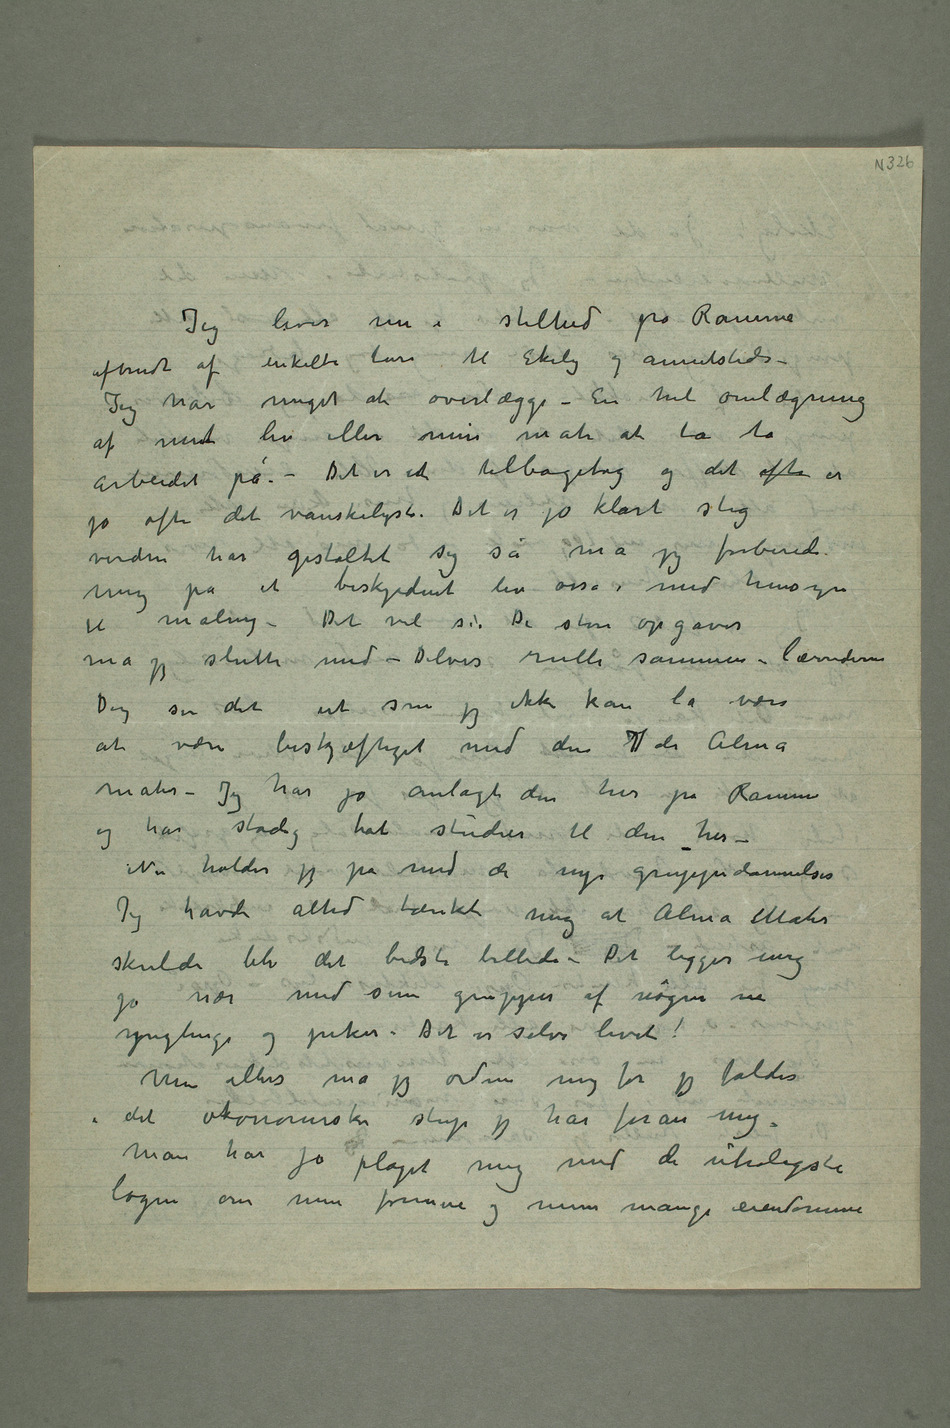 N 326
Jeg lever nu i stilhed på Ramme
afbrudt af enkelte ture til Ekely og annetsteds –
Jeg har meget at overlægge – En hel omlægning
af mit liv eller min måte at ta ta
arbeidet på. – Det er et tilbagetog og det ofte er
jo ofte det vanskeligste. Det er jo klart slig
verden har gestaltet sig så må jeg forberede
mig på et beskjedent liv også i med hensyn
til maling – Det vil si: De store opgaver
må jeg slutte med – Delvis rulle sammen lærrederne
Dog ser det ut som jeg ikke kan la være
at være beskjæftiget med den de Alma
mater – Jeg har jo anlagt den her på Ramme
og har stadig hat studier til den her –
Nu holder jeg på med de nye gruppedannelser
Jeg havde altid tænkt mig at Alma Mater
skulde bli det bedste billede – Det ligger mig
jo nær med sine grupper af nøgne
ynglinge og piker – Det er selve livet!
Men ellers må jeg ordne mig før jeg falder
i det økonomiske stup jeg har foran mig –
Man har jo plaget mig med de utroligste
løgne om min formue og mine mange eiendomme